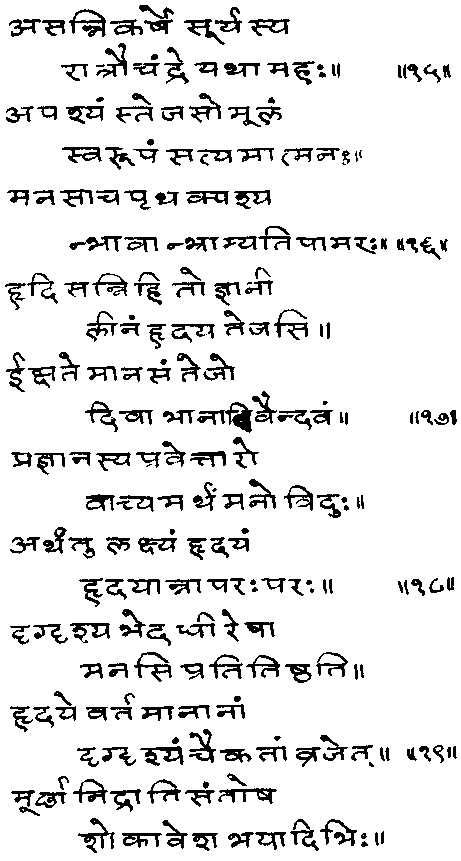 असन्निकर्षे सूर्यस्य
रात्रौचंद्रे यथा महः॥ ॥१५॥
अपश्यंस्तेजसोमूलं
स्वरूपंसत्यमात्मनः॥
मनसाचपृथक्पश्य
न्भावान्भ्राम्यतिपामरः॥ ॥१६॥
हृदिसन्निहितोज्ञानी
लीनंहृदयतेजसि॥
ईक्षतेमानसंतेजो
दिवाभानाविवैन्दवं॥ ॥१७॥
प्रज्ञानस्यप्रवेत्तारो
वाच्यमर्थंमनोविदुः॥
अर्थंतुलक्ष्यंहृदयं
हृदयान्नापरःपरः॥ ॥१८॥
दृग्दृश्यभेदधीरेषा
मनसिप्रतितिष्ठति॥
हृदयेवर्तमानानां
दृग्दृश्यंचैकतांव्रजेत्॥ ॥१९॥
मूर्छानिद्रातिसंतोष
शोकावेशभयादिभिः॥